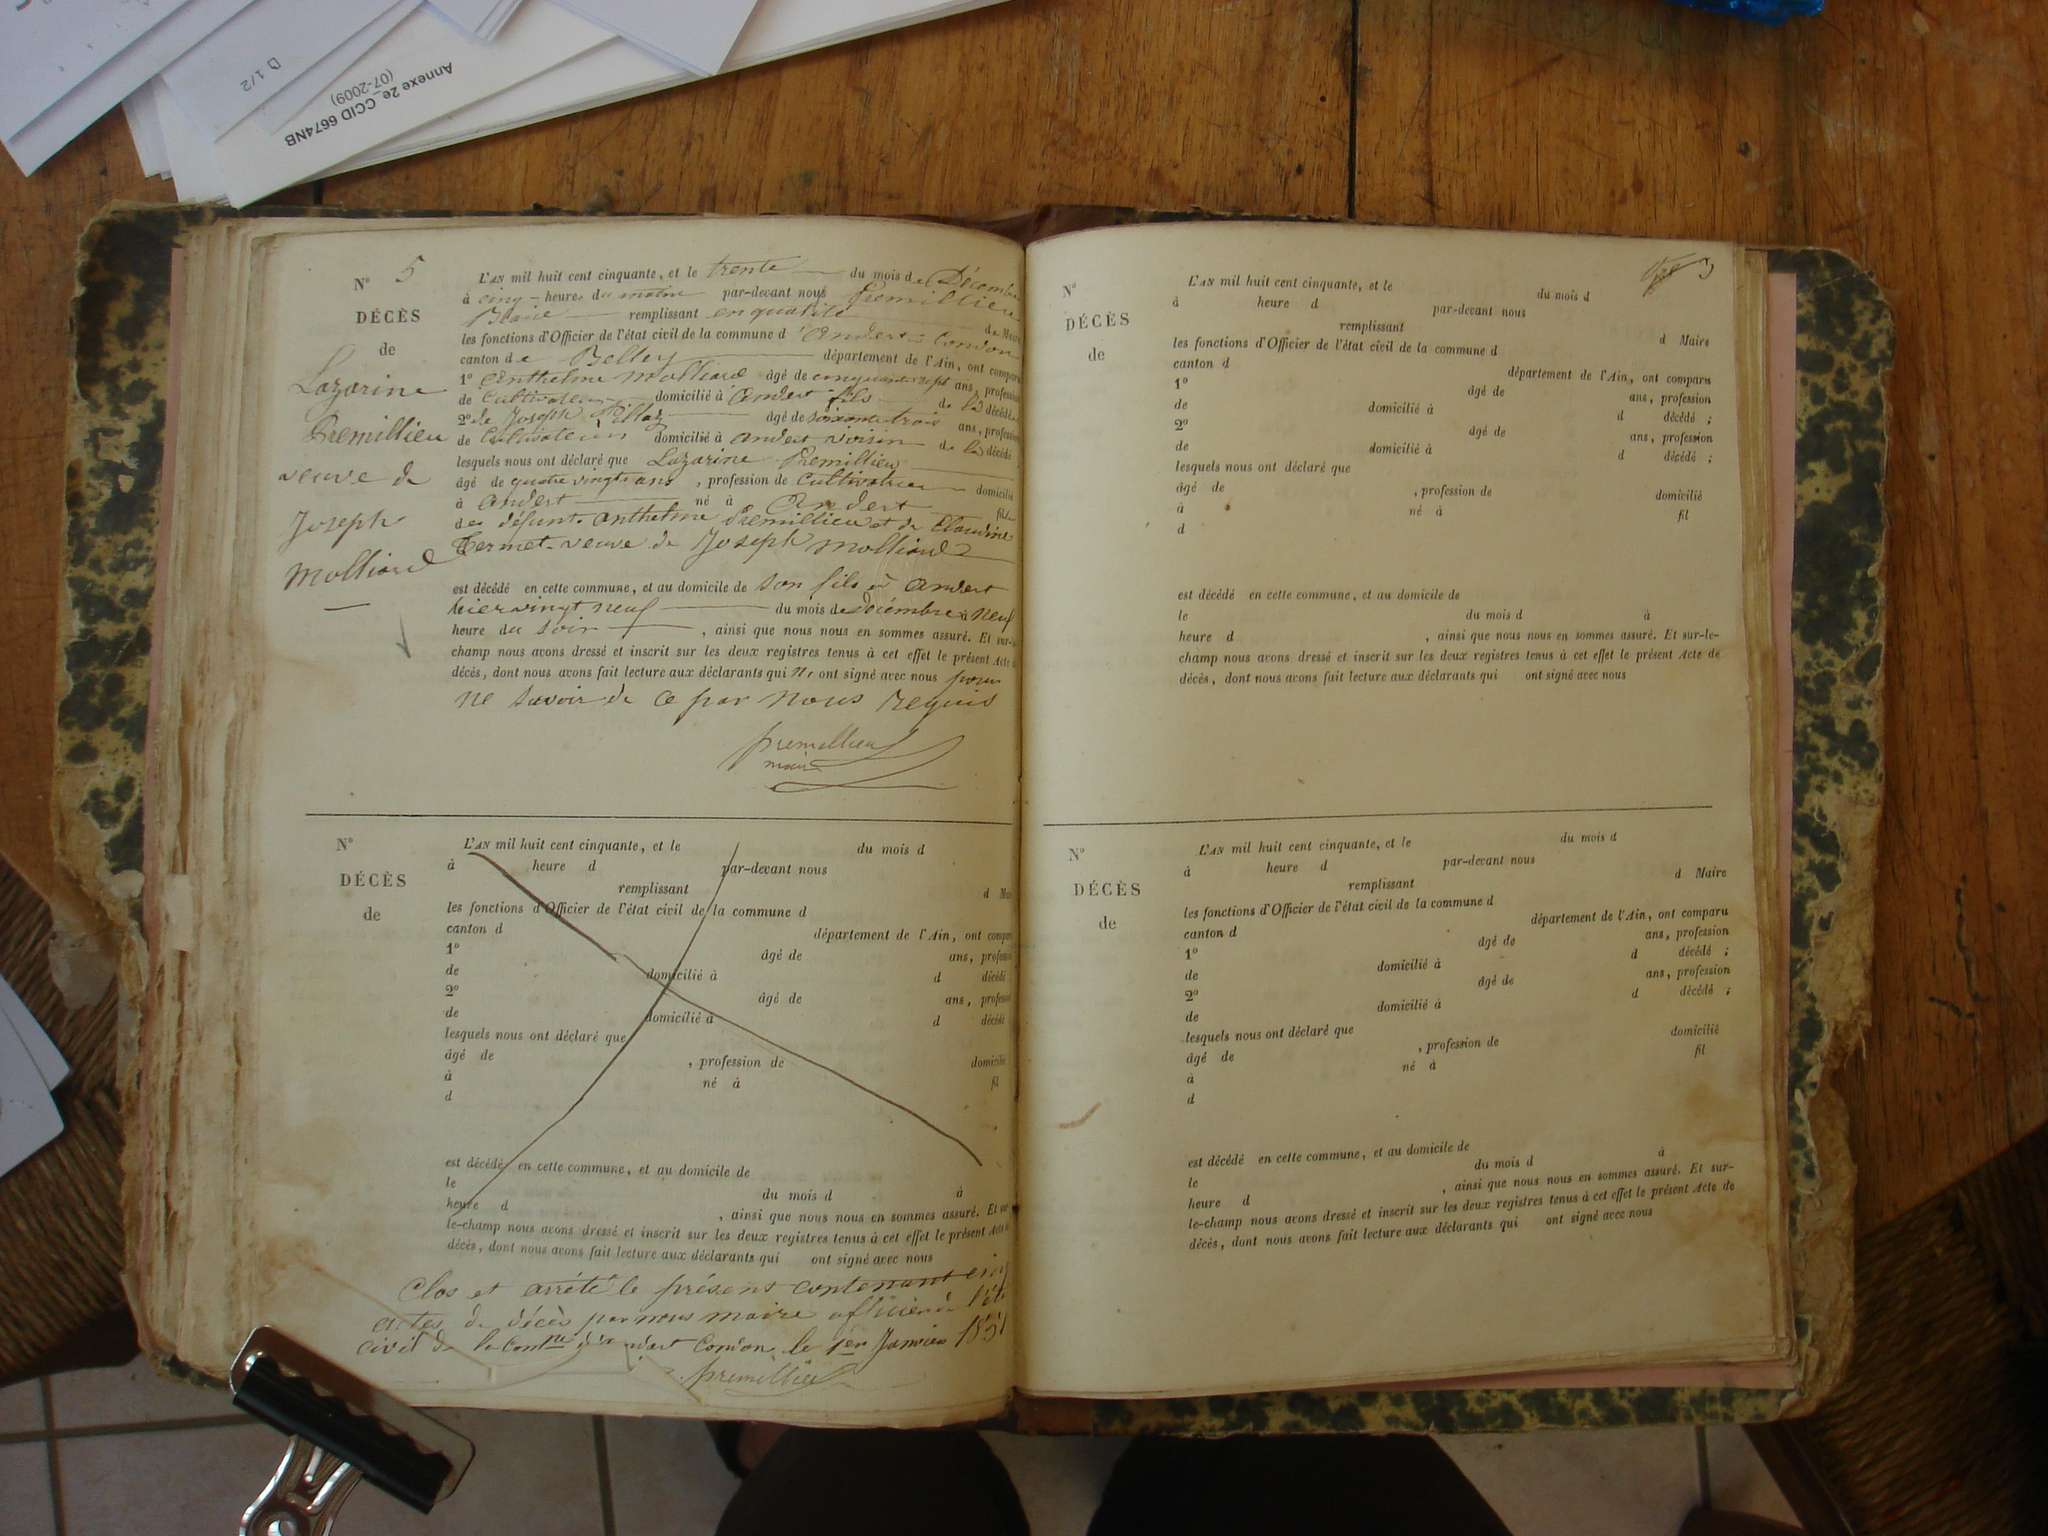 D 1/2
Annexe 2e_CCID 6674NB
(07-2009)
N° 5
DÉCÈS
de
Lazarine
Premillieu
veuve de
Joseph
Molliard
L'AN mil huit cent cinquante, et le trente du mois de Décembre
à cinq heures du matin par-devant nous Premillieu
Blaise remplissant en qualité de Maire
les fonctions d'Officier de l'état civil de la commune d'Andert-Condon
canton de Belley département de l'Ain, ont comparu
1° Anthelme Molliard âgé de cinquante sept ans, profession
de Cultivateur domicilié à Andert fils de la décédée
2° de Joseph Pillaz âgé de soixante trois ans, profession
de Cultivateur domicilié à Andert voisin de la décédé
lesquels nous ont déclaré que Lazarine Premillieu
âgé de quatre vingts ans, profession de Cultivatrice domicilié
à Andert né à Andert fille
des défunts Anthelme Premillieu et de Claudine
Termet veuve de Joseph Molliard
est décédé en cette commune, et au domicile de son fils à Andert
hier vingt neuf du mois de Décembre à neuf
heure du soir, ainsi que nous nous en sommes assuré. Et sur-le-
champ nous avons dressé et inscrit sur les deux registres tenus à cet effet le présent Acte de
décès, dont nous avons fait lecture aux déclarants qui n'ont signé avec nous pour
ne savoir de ce par nous requis
premillieu
maire
N°
DÉCÈS
de
L'AN mil huit cent cinquante, et le du mois d
à heure d par-devant nous
remplissant d Mai
les fonctions d'Officier de l'état civil de la commune d
canton d département de l'Ain, ont comparu
1° âgé de ans, profession
de domicilié à d décédé
2° âgé de ans, profession
de domicilié à d décédé
lesquels nous ont déclaré que
âgé de , profession de domicilié
à né à fil
d
est décédé en cette commune, et au domicile de
le du mois d à
heure d , ainsi que nous nous en sommes assuré. Et sur-
le-champ nous avons dressé et inscrit sur les deux registres tenus à cet effet le présent Acte de
décès, dont nous avons fait lecture aux déclarants qui ont signé avec nous
Clos et arrêté le présent contenant cinq
actes de décès par nous maire officier de l'état
civil de la Comne d'Andert Condon le 1er Janvier 1851
premillieu
N°
DÉCÈS
de
L'AN mil huit cent cinquante, et le du mois d
à heure d par-devant nous
remplissant d Maire
les fonctions d'Officier de l'état civil de la commune d
canton d département de l'Ain, ont comparu
1° âgé de ans, profession
de domicilié à d décédé ;
2° âgé de ans, profession
de domicilié à d décédé ;
lesquels nous ont déclaré que
âgé de , profession de domicilié
à né à fil
d
est décédé en cette commune, et au domicile de
le du mois d à
heure d , ainsi que nous nous en sommes assuré. Et sur-le-
champ nous avons dressé et inscrit sur les deux registres tenus à cet effet le présent Acte de
décès, dont nous avons fait lecture aux déclarants qui ont signé avec nous
N°
DÉCÈS
de
L'AN mil huit cent cinquante, et le du mois d
à heure d par-devant nous
remplissant d Maire
les fonctions d'Officier de l'état civil de la commune d
canton d département de l'Ain, ont comparu
1° âgé de ans, profession
de domicilié à d décédé ;
2° âgé de ans, profession
de domicilié à d décédé ;
lesquels nous ont déclaré que
âgé de , profession de domicilié
à né à fil
d
est décédé en cette commune, et au domicile de
le du mois d à
heure d , ainsi que nous nous en sommes assuré. Et sur-
le-champ nous avons dressé et inscrit sur les deux registres tenus à cet effet le présent Acte de
décès, dont nous avons fait lecture aux déclarants qui ont signé avec nous